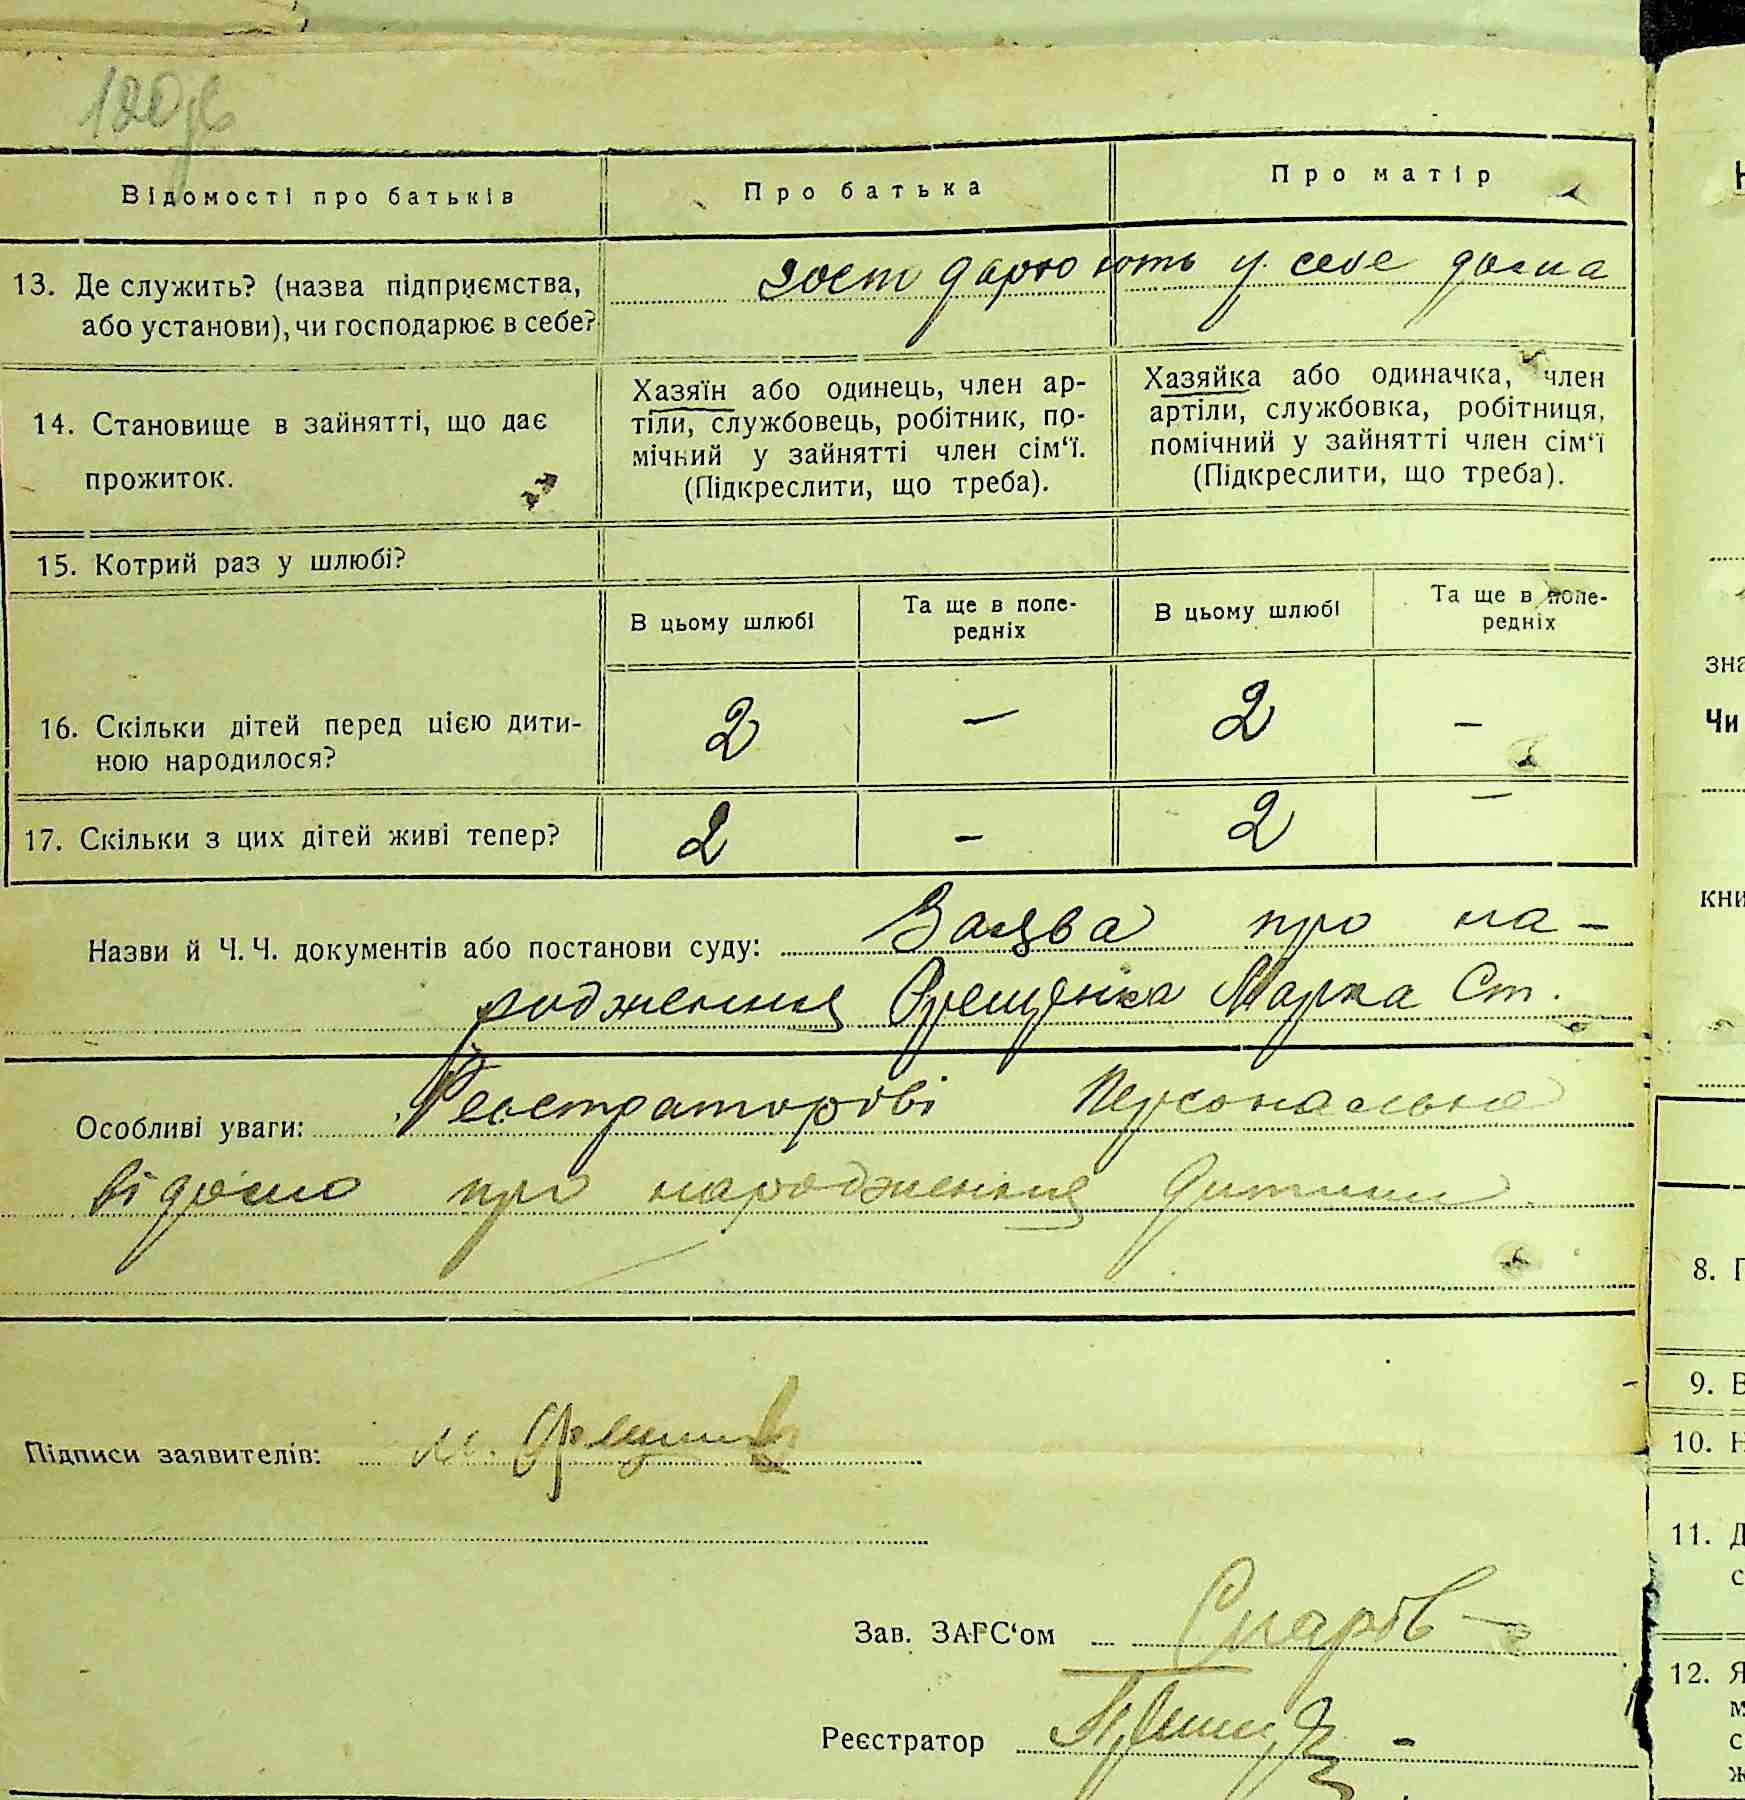 Відомості про батьків Про батька Про матір
13. Де служить? (назва підприємства,
або установи), чи господарює в себе?
господарюють у себе дома
14. Становище в зайнятті, що дає
прожиток.
Хазяїн або одинець, член ар-
тіли, службовець, робітник, по-
мічний у зайнятті член сім‘ї.
(Підкреслити, що треба).
Хазяйка або одиначка, член
артіли, службовка, робітниця,
помічний у зайнятті член сім‘ї
(Підкреслити, що треба).
15. Котрий раз у шлюбі?
В цьому шлюбі
Та ще в попе-
редніх
В цьому шлюбі
Та ще в попе-
редніх
16. Скільки дітей перед цією дити-
ною народилося?
2 — 2 —
17. Скільки з цих дітей живі тепер?
2 — 2 —
Назви й Ч. Ч. документів або постанови суду: Заява про на-
родження Марка Ст.
Особливі уваги: Реєстраторові персонально
відомо про народження дитини
Підписи заявителів: М.
Зав. ЗАГС‘ом
Реєстратор
зна
Чи
кни
8. П
9. В
10. Н
11. Д
с
12. Я
м
с
ж